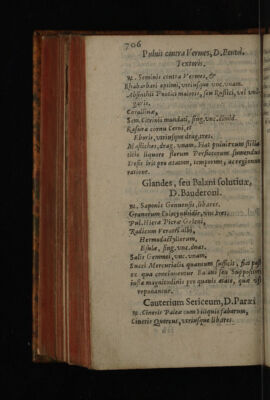 706
Pulvis contra Vermes, D. Bentol.
Textoris.
℞. Seminis contra Vermes, &
Rhabarbari optimi, utriusque unc. unam.
Absinthii Pontici minoris, seu
garis.
Corallina,
Sem. Citrini mundati, sing. unc. dimid.
Rasura cornu Cervi, et
Eboris, utriusque drag. tres.
Mastiches, drag. unam. Fiat
titio liquore florum Persicorum sumendus
Dosis erit pro ætatum, temporum, ac regionum
ratione.
Glandes, seu Balani solutivæ,
D. Bauderoni.
℞. Saponis Genuensis, libar.
Granorum Colocynthidis, unc. tres.
Pul. Hieræ Picræ Galeni,
Radicum Veratri albi,
Hermodactylorum,
Esulæ, sing. unc. duas.
Salis Gemmei, unc. unam.
Succi Mercurialis quantum sufficit, fiat
ex qua concinnentur Balani seu Suppositori
iustæ magnitudinis pro
Cauterium Sericeum, D. Paræi
℞. Cineris Paleæ cum siliquis fabarum,
Cineris Quercus, utriusque libras.